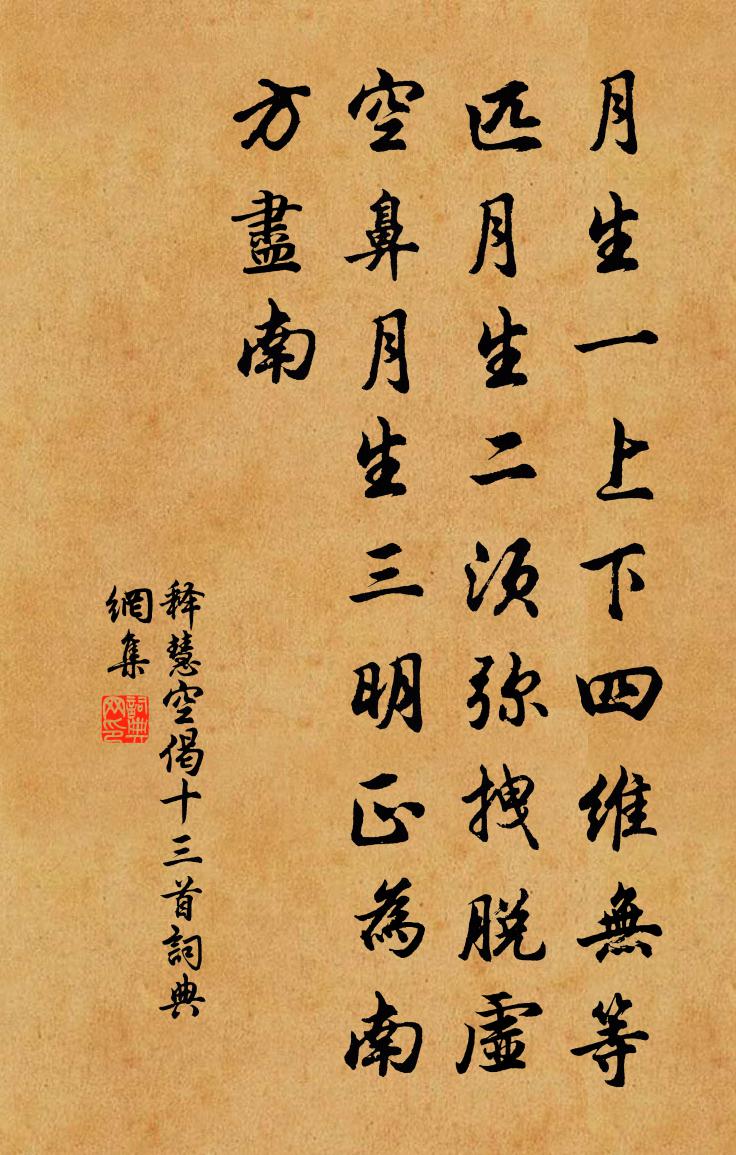 月生一上下四維無等
匹月生二須弥拽脫虛
空鼻月生三明正為南
方盡南
释慧空偈十三首詞典
網集
詞典網印